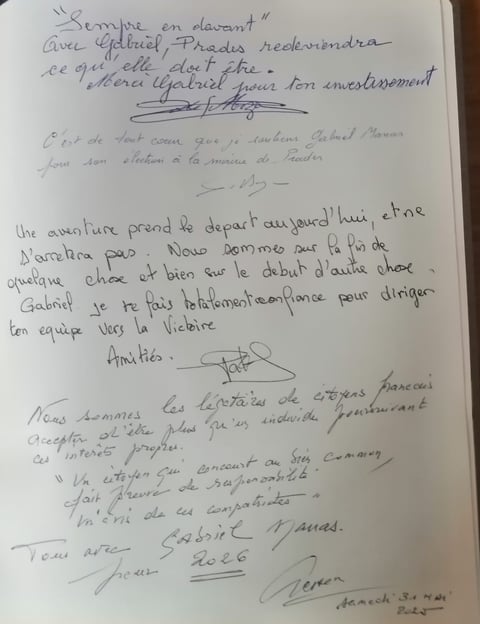 "Sempre en davant"
Avec Gabriel, Prades redeviendra
ce qu'elle doit être.
Merci Gabriel pour ton investissement
C'est de tout coeur que je soutiens Gabriel Manas
pour son élection à la mairie de Prades
Une aventure prend le depart aujourd'hui, et ne
s'arretera pas. Nous sommes sur la fin de
quelque chose et bien sur le debut d'autre chose.
Gabriel je te fais totalement confiance pour diriger
ton equipe vers la Victoire
Amitiés.
Nous sommes les légataires de citoyens français
accepter d'être plus qu'un individu poursuivant
ces interêts propres.
"Un citoyen qui concourt au bien commun,
fait preuve de responsabilité
vis de ces compatriotes"
Tous avec Gabriel Manas.
pour 2026
Samedi 31 Mai
2025